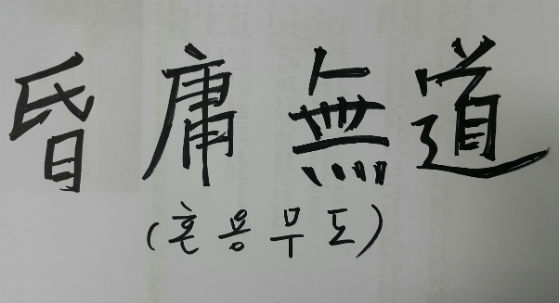 昏庸無道
(혼용무도)